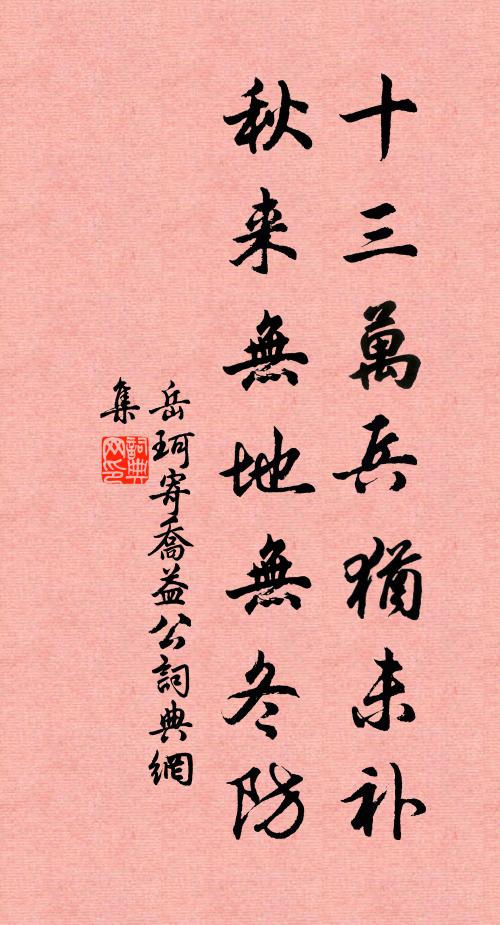 十三萬兵猶未补
秋来無地無冬防
岳珂寄喬益公詞典網
集
詞典
网印